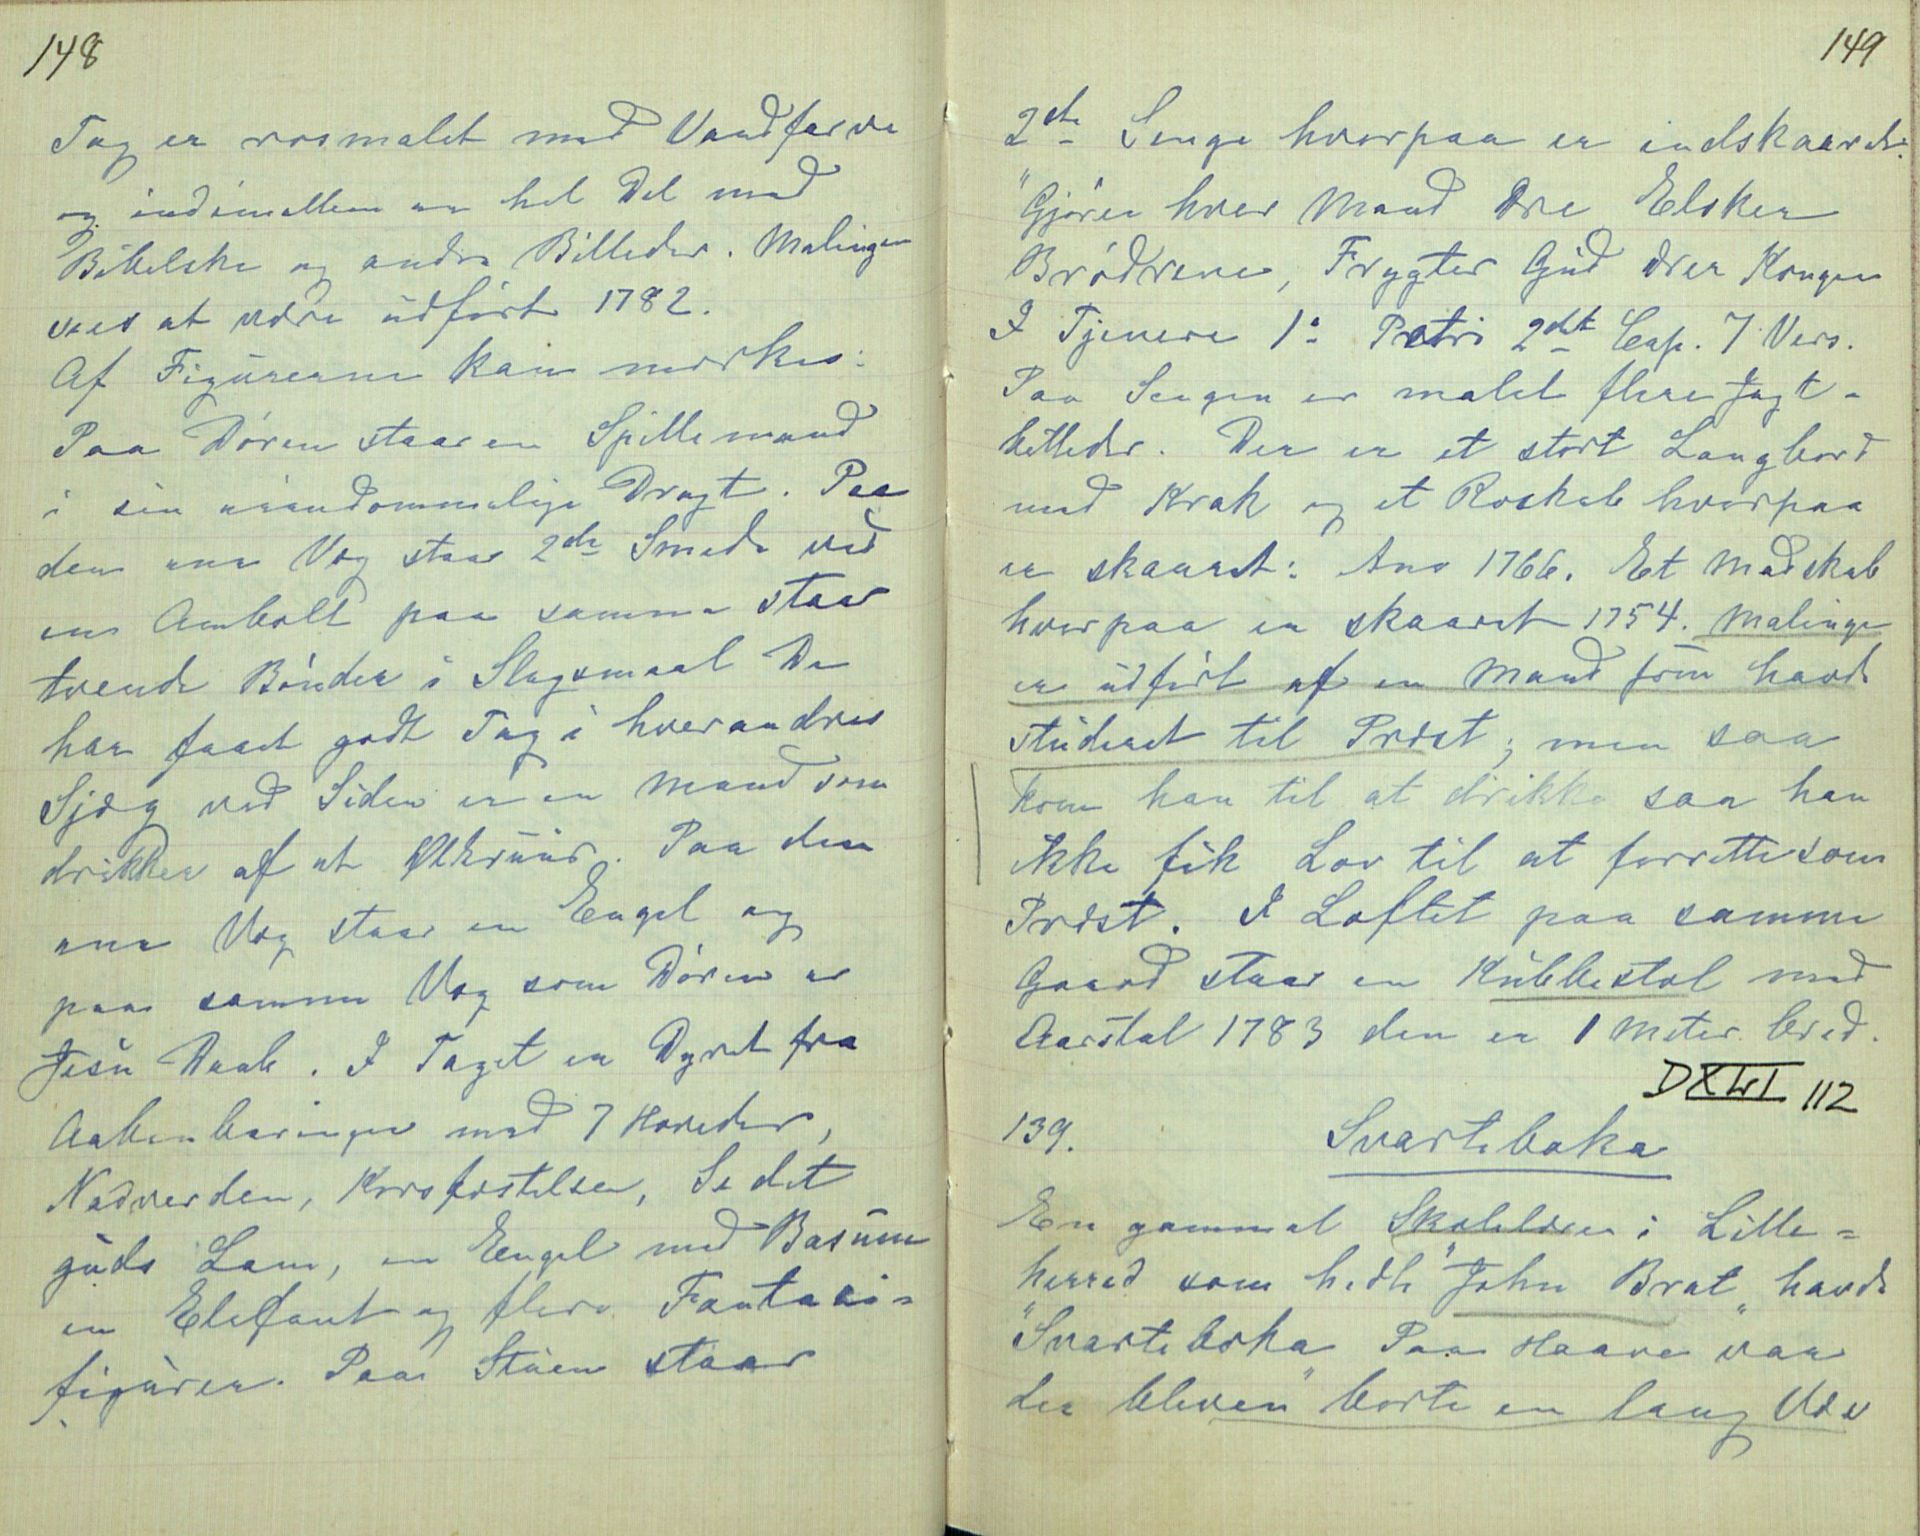 148
Tag er rosmalet med Vandfarve
og indimellem en hel Del med
Bibelske og andre Billeder. Malingen
sees at være udført 1782.
Af Figurerne kan merkes:
Paa Døren staar en Spillemand
i sin eiendommelige Dragt. Paa
den ene Væg staar 2de Smede ved
en Ambolt paa samme staar
tvende Bønder i Slagsmaal De
har faaet godt Tag i hverandres
Sjæg ved Siden er en Mand som
drikker af et Ølkruus. Paa den
ene Væg staar en Engel og
paa samme Væg som Døren er
Jesu Daab. I Taget er Dyret fra
Aabenbaringen med 7 Hoveder,
Nadverden, Korsfæstelsen, Se det
guds Lam, en Engel med Basuun
en Elefant og flere Fantasi=
figurer. Paa Stuen staar
149
2de Senge hvorpaa er indskaaret:
"Gjører hver Mand Ære Elsker
Brødrene, Frygter Gud ærer Kongen
I Tjenere 1s Petri 2det Cap. 7 Vers.
Paa Sengen er malet flere Jagt-
billeder. Der er et stort Langbord
med Krak og et Roskab hvorpaa
er skaaret: Ano 1766. Et Madskab
hvorpaa er skaaret 1754. Malingen
er udført af en Mand som havde
studeret til Præst; men saa
kom han til at drikke saa han
ikke fik Lov til at forrette som
Præst. I Loftet paa samme
Gaard staar en Kubbestol med
Aarstal 1783 den er 1 Meter bred.
112
139. Svarteboka
En gammel Skolelærer i Lille=
herred som hedte "John Brat" havde
"Svarteboka Paa Haave var
der bleven" borte en lang Væv